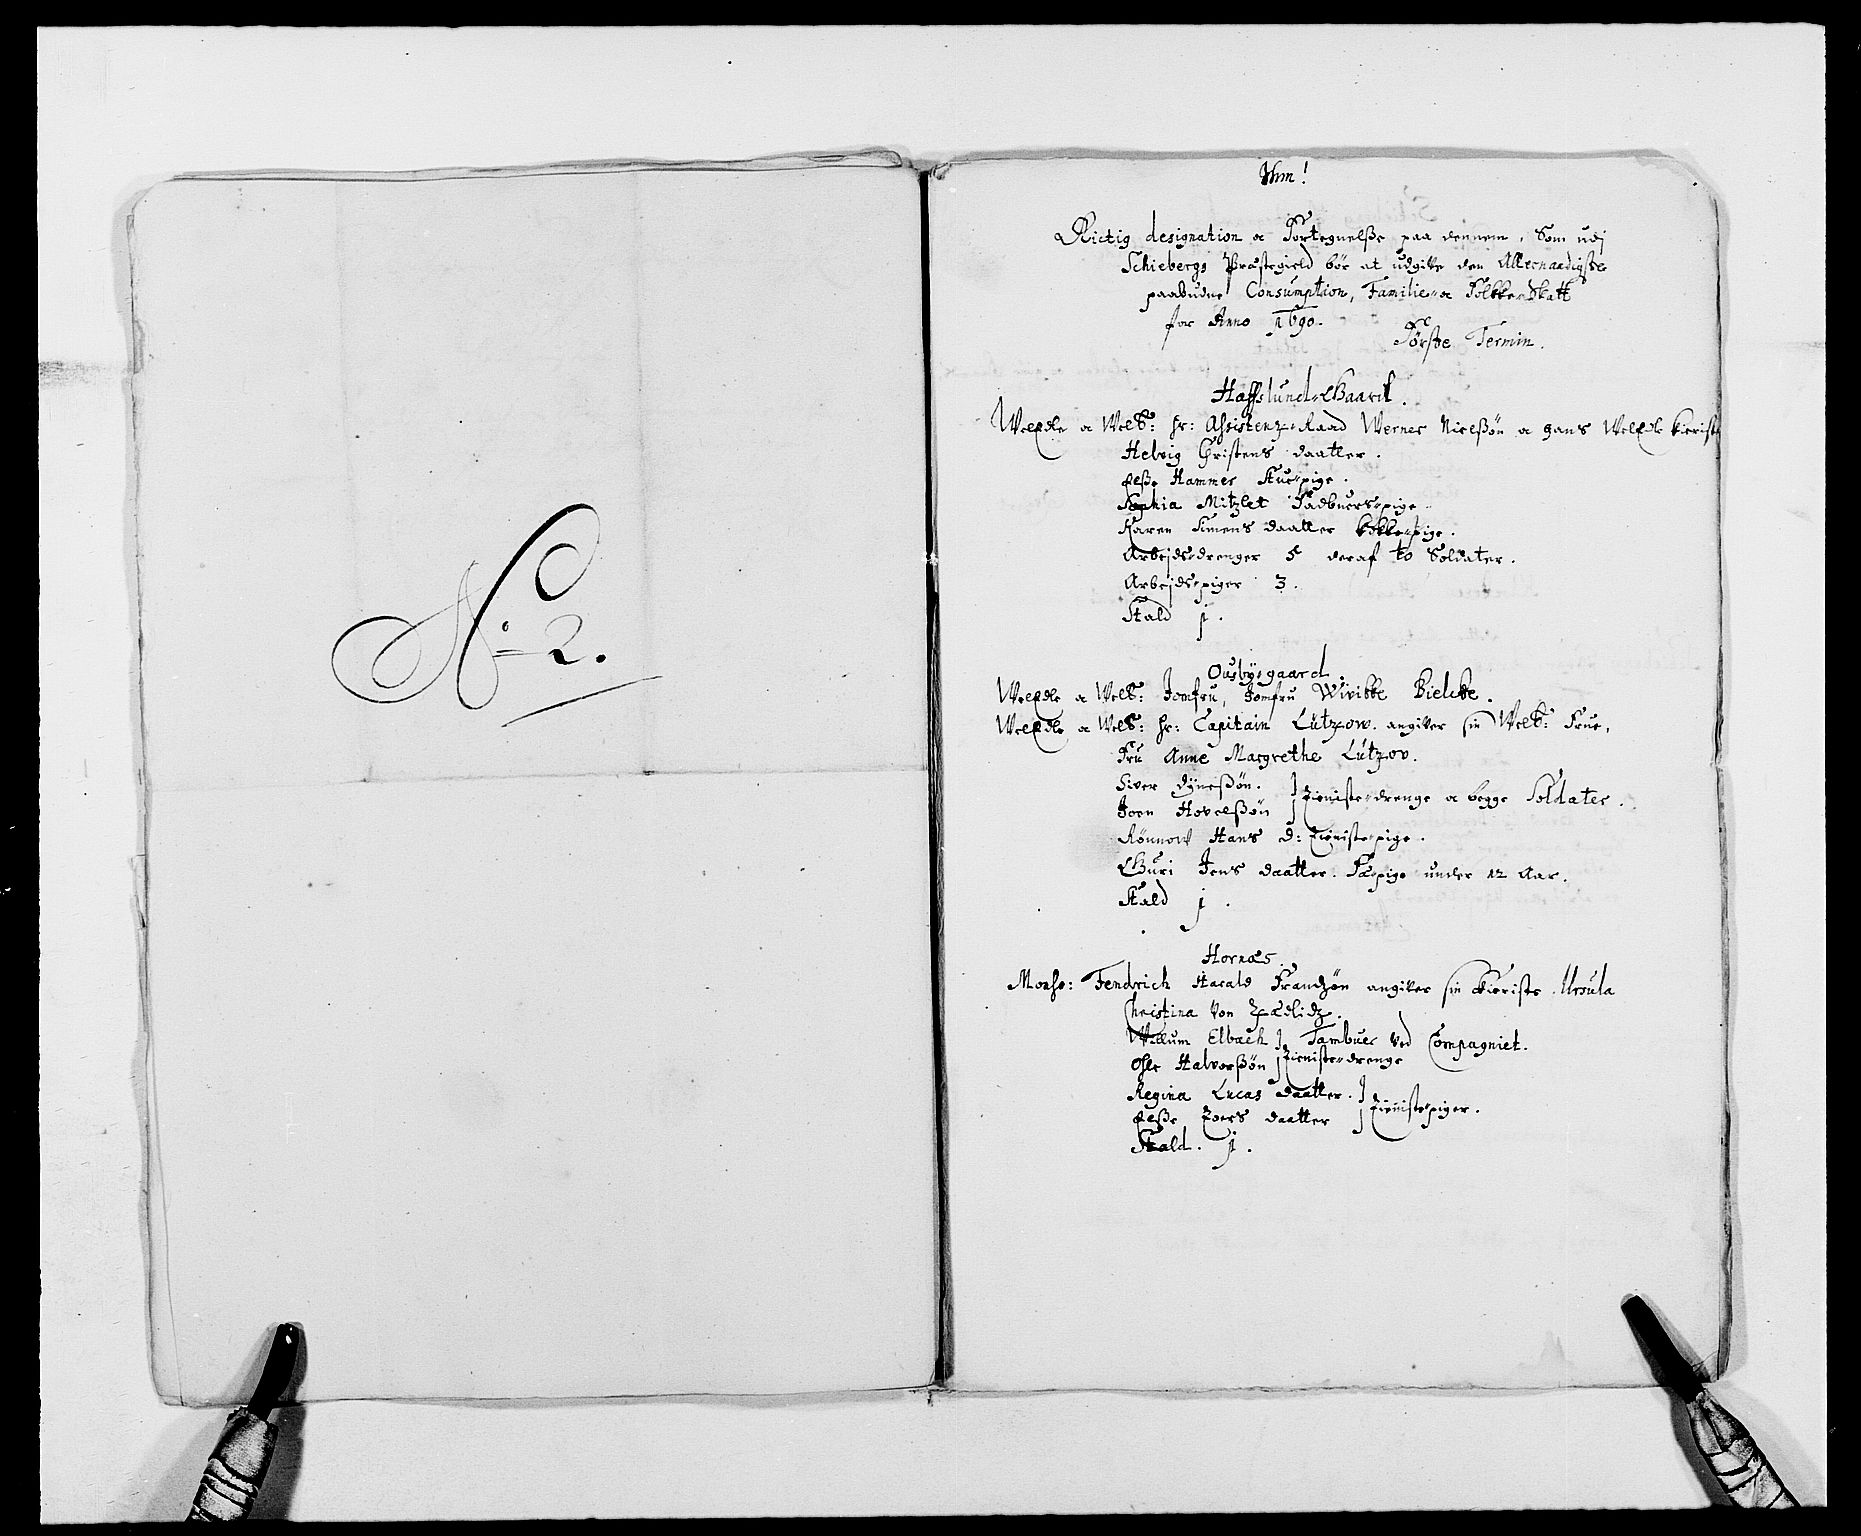 No 2.
Rictig designation oc Fortegnelsse paa dennem, Som udj
Schiebergs Præstegield bør at udgifve den Allernaadigste
paabudne Consumption, Familie- oc Folkke-Skatt
for Anno 1690.
Første Termin.
Hafslund-Gaard.
WelEdle oc Welb: Hr: Assistenz-Raad Werner Nielssøn oc hans WelEdle kieriste
Helvig Christens daatter.
Elsse Hammer Stue-pige.
Sophia Mitzlet Fadbuers-pige.
Karen Simens daatter kokke-pige.
Arbejds-drenger 5 deraf to Soldater.
Arbejds-piger 3.
Stald 1.
Ousbys-gaard.
WelEdle oc Welb: Jomfru, Jomfru Wivikke Bielcke.
WelEdle oc Welb: Hr: Capitain Lützow. angifver sin Welb: Frue,
Fru Anne Margrethe Lützov.
Siver Dynessøn.
Joen Hovelssøn } Tieniste-drenge oc begge Soldater.
Rønnow Hans d: Tieniste-pige.
Guri Jens daatter. Fæ-pige under 12 Aar.
Stald 1.
Hornæs.
Monsr: Fendrich Harald Frandzøn angifver sin Kieriste. Ursula
Christina von Zedlidz.
Willum Elbach } Tambuer ved Compagniet.
Ole Halvorssøn } Tieniste-drenge
Regina Lucas daatter.
Elsse Toers daatter } Tieniste-piger.
Stald. 1.